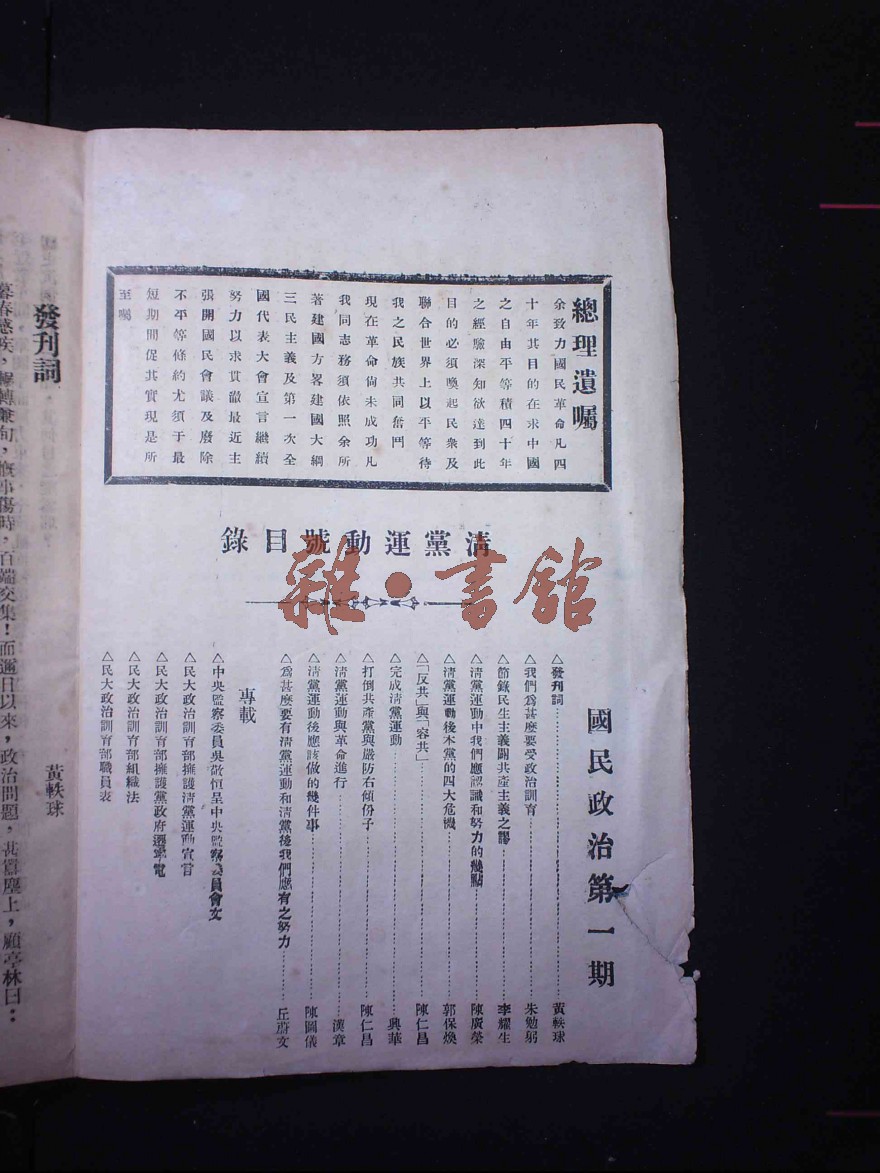 總理遺囑
余致力國民革命凡四
十年其目的在求中國
之自由平等積四十年
之經驗深知欲達到此
目的必須喚起民衆及
聯合世界上以平等待
我之民族共同奮鬥
現在革命尙未成功凡
我同志務須依照余所
著建國方畧建國大綱
三民主義及第一次全
國代表大會宣言繼續
努力以求貫澈最近主
張開國民會議及廢除
不平等條約尤須于最
短期間促其實現是所
至囑
清黨運動號目錄
雜·書館
國民政治第一期
△發刊詞 黃軼球
△我們爲甚麽要受政治訓育 朱勉躬
△節錄民生主義闢共產主義之謬 李耀生
△清黨運動中我們應認識和努力的幾點 陳廣榮
△清黨運動後本黨的四大危機 郭保煥
△「反共」與「容共」 陳仁昌
△完成清黨運動 興華
△打倒共產黨與嚴防右傾份子 陳仁昌
△清黨運動與革命進行 漢章
△清黨運動後應該做的幾件事 陳圖儀
△爲甚麽要有清黨運動和清黨後我們應有之努力 丘蔚文
專載
△中央監察委員吳敬恒呈中央監察委員會文
△民大政治訓育部擁護清黨運動宣言
△民大政治訓育部擁護黨政府遷寧電
△民大政治訓育部組織法
△民大政治訓育部職員表
發刊詞
黃軼球
暮春感疾，輾轉兼旬，慨事傷時，百端交集！而邇日以來，政治問題，甚囂塵上，顧亭林曰：